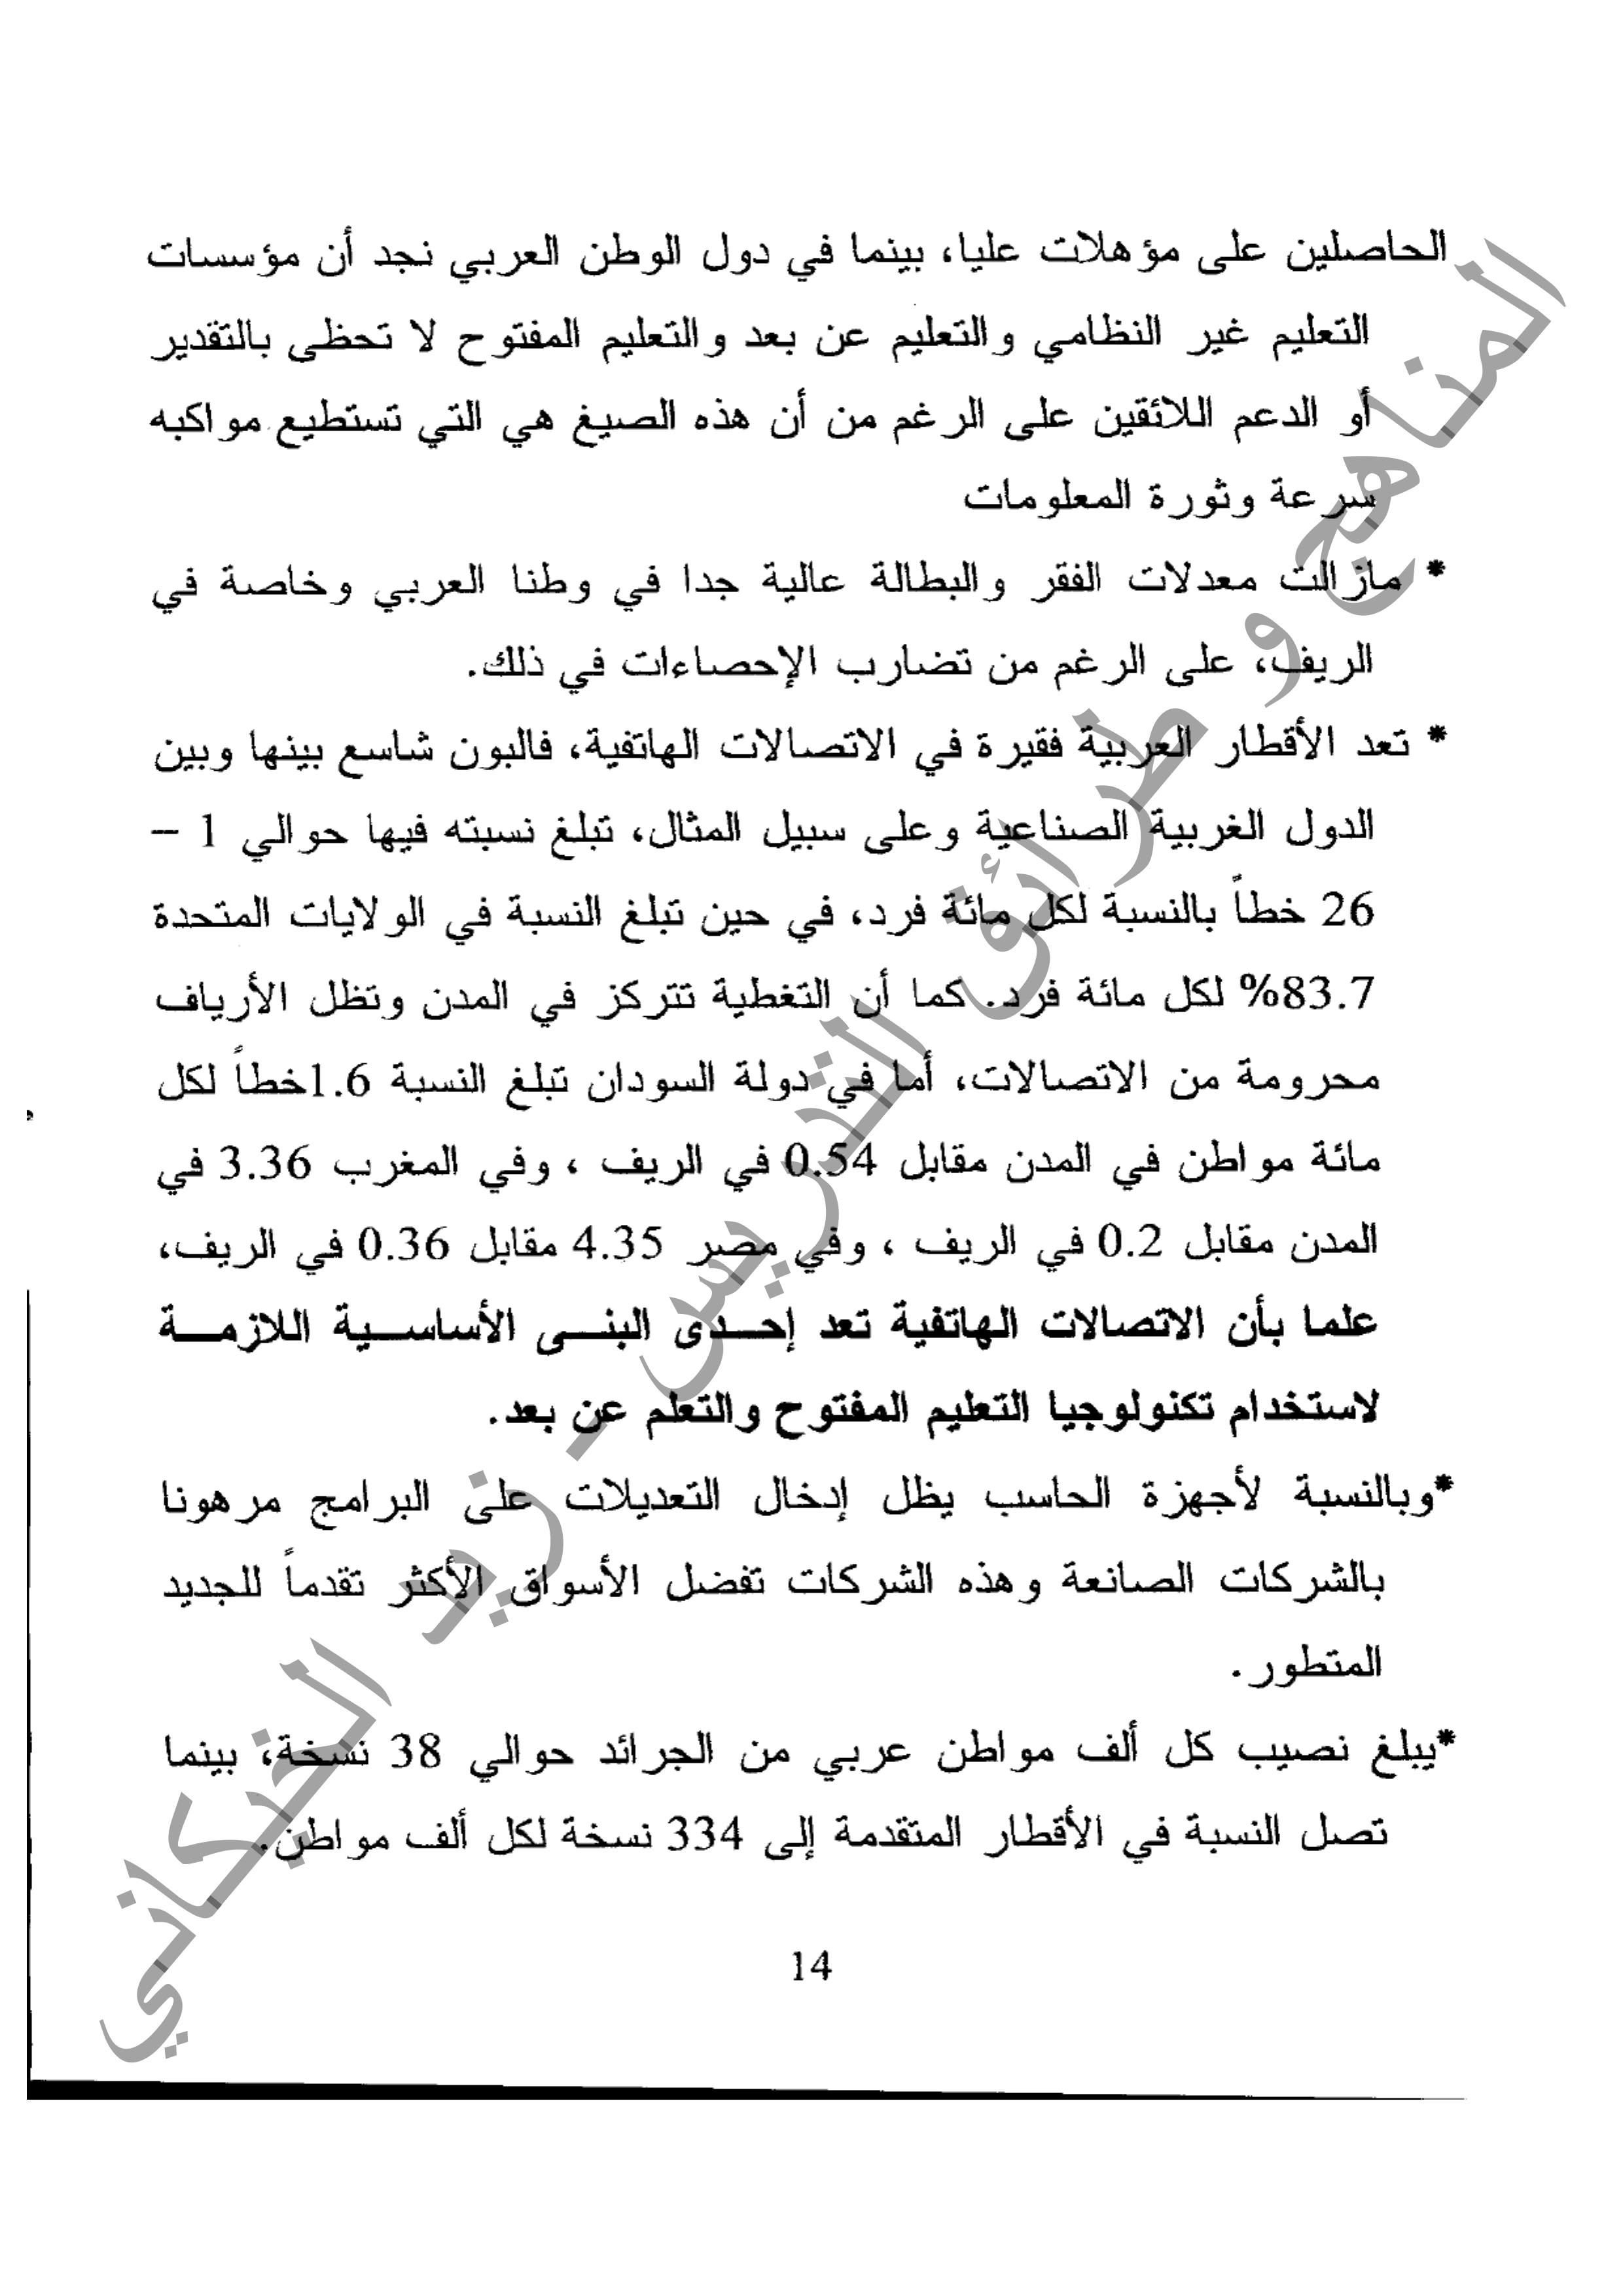 الحاصلين على مؤهلات عليا، بينما في دول الوطن العربي نجد أن مؤسسات
التعليم غير النظامي والتعليم عن بعد والتعليم المفتوح لا تحظى بالتقدير
أو الدعم اللائقين على الرغم من أن هذه الصيغ هي التي تستطيع مواكبه
سرعة وثورة المعلومات
* مازالت معدلات الفقر والبطالة عالية جدا في وطنا العربي وخاصة في
الريف، على الرغم من تضارب الإحصاءات في ذلك.
* تعد الأقطار العربية فقيرة في الاتصالات الهاتفية، فالبون شاسع بينها وبين
الدول الغربية الصناعية وعلى سبيل المثال، تبلغ نسبته فيها حوالي 1 –
26 خطاً بالنسبة لكل مائة فرد، في حين تبلغ النسبة في الولايات المتحدة
83.7% لكل مائة فرد. كما أن التغطية تتركز في المدن وتظل الأرياف
محرومة من الاتصالات، أما في دولة السودان تبلغ النسبة 1.6خطاً لكل
مائة مواطن في المدن مقابل 0.54 في الريف ، وفي المغرب 3.36 في
المدن مقابل 0.2 في الريف ، وفي مصر 4.35 مقابل 0.36 في الريف،
علما بأن الاتصالات الهاتفية تعد إحـدى البنـى الأساسـية اللازمـة
لاستخدام تكنولوجيا التعليم المفتوح والتعلم عن بعد.
*وبالنسبة لأجهزة الحاسب يظل إدخال التعديلات على البرامج مرهونا
بالشركات الصانعة وهذه الشركات تفضل الأسواق الأكثر تقدماً للجديد
المتطور.
*يبلغ نصيب كل ألف مواطن عربي من الجرائد حوالي 38 نسخة، بينما
تصل النسبة في الأقطار المتقدمة إلى 334 نسخة لكل ألف مواطن.
14
المناهج و طرائق التدريس - زيد الخيكاني